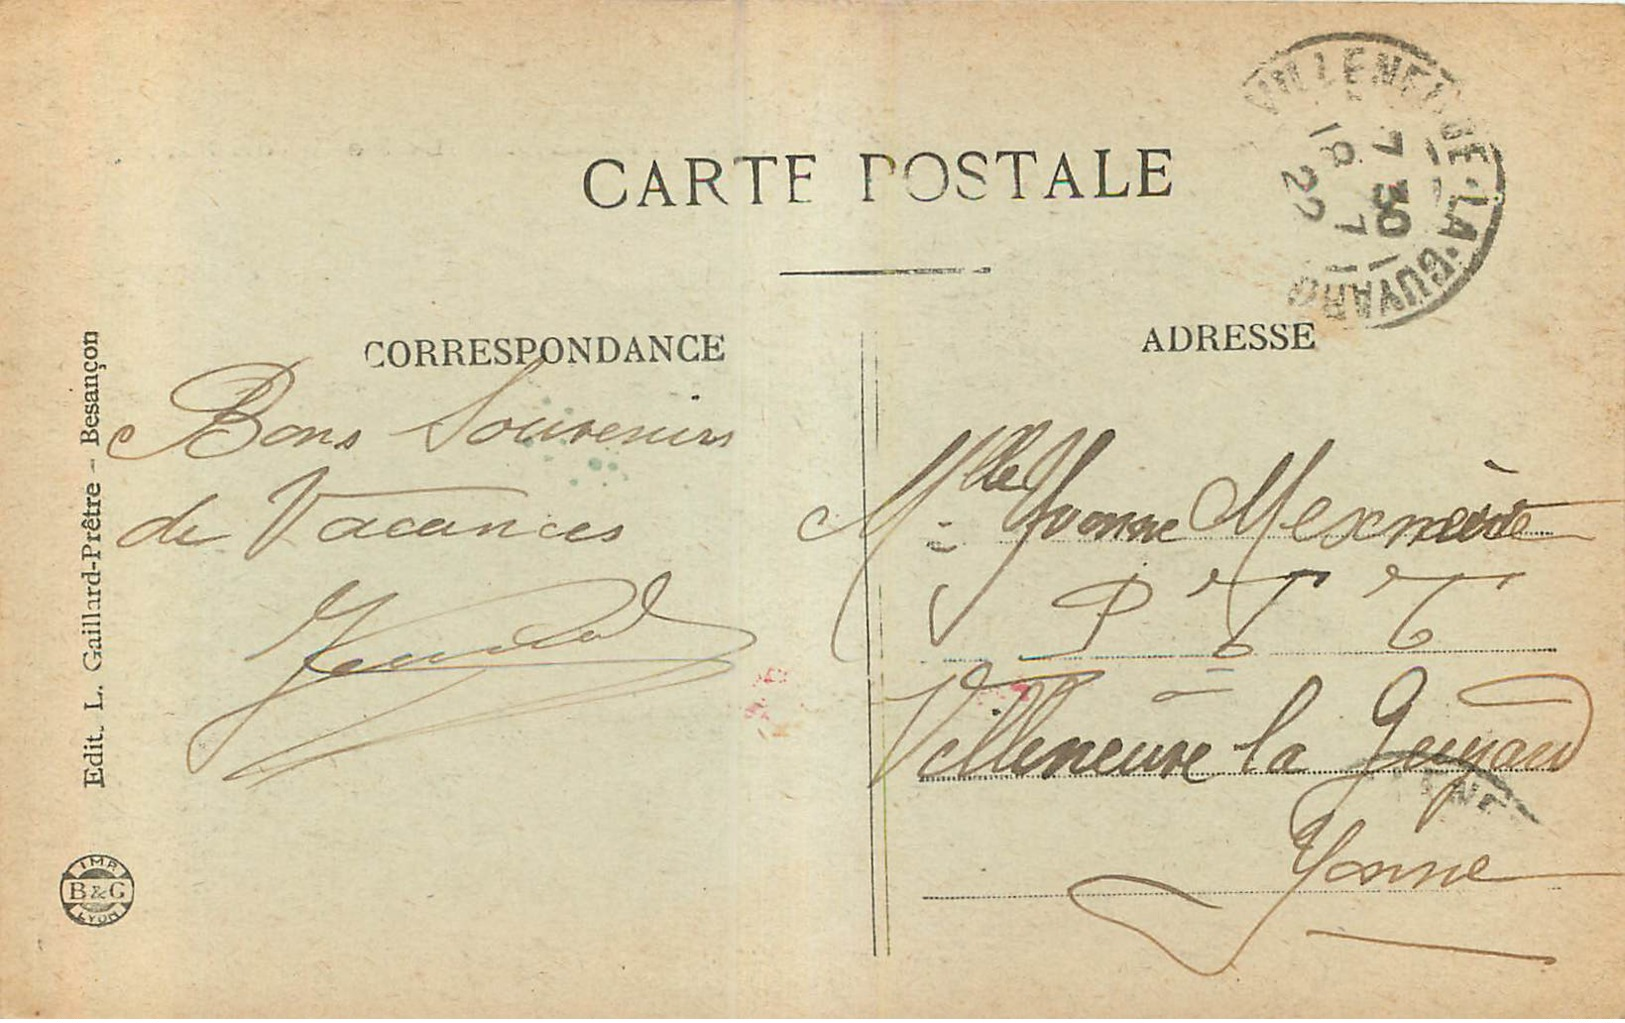 CARTE POSTALE
CORRESPONDANCE
ADRESSE
Bons Souvenirs
de Vacances
Mlle Yvonne
P T T
Villeneuve la Guyard
Yonne
VILLENEUVE-LA-GUYARD
7 30
18 7
22
Edit. L. Gaillard-Prêtre - Besançon
IMP.
B & G
LYON